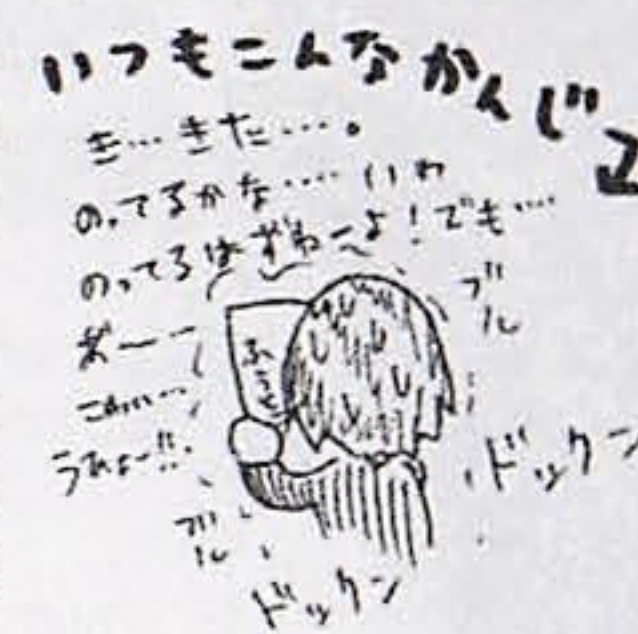 いつもこんなかんじ2
き…きた…。
のってるかな…いや
のってるはずねーよ!でも…
あー
こわい…
うひょー!!
ふうとう
ブル
ドックン
ブル
ドックン